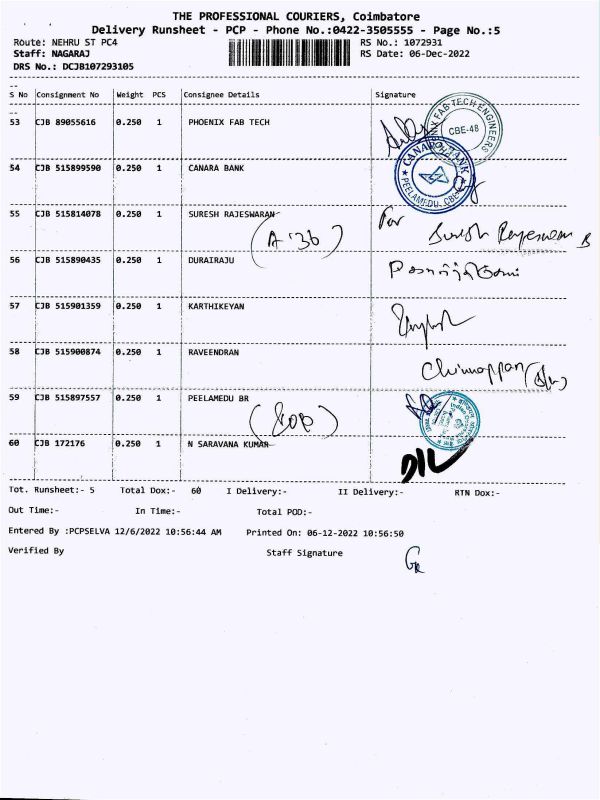 THE PROFESSIONAL COURIERS, Coimbatore
Delivery Runsheet - PCP - Phone No.:0422-3505555 - Page No.:5
Route: NEHRU ST PC4 RS No.: 1072931
Staff: NAGARAJ RS Date: 06-Dec-2022
DRS No.: DCJB107293105
S No Consignment No Weight PCS Consignee Details Signature
53 CJB 89055616 0.250 1 PHOENIX FAB TECH
PHOENIX FAB TECH ENGINEERS CBE-48
54 CJB 515899590 0.250 1 CANARA BANK
CANARA BANK PEELAMEDU, CBE
55 CJB 515814078 0.250 1 SURESH RAJESWARAN For
(A '36)
56 CJB 515890435 0.250 1 DURAIRAJU
57 CJB 515901359 0.250 1 KARTHIKEYAN
58 CJB 515900874 0.250 1 RAVEENDRAN
Chinnappan
59 CJB 515897557 0.250 1 PEELAMEDU BR
60 CJB 172176 0.250 1 N SARAVANA KUMAR
DIL
Tot. Runsheet:- 5 Total Dox:- 60 I Delivery:- II Delivery:- RTN Dox:-
Out Time:- In Time:- Total POD:-
Entered By :PCPSELVA 12/6/2022 10:56:44 AM Printed On: 06-12-2022 10:56:50
Verified By Staff Signature